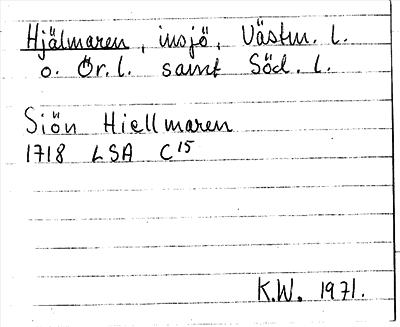 Hjälmaren, insjö, Västm. l.
o. Ör. l. samt Söd. l.
Siön Hiellmaren
1718 LSA C15
K.W. 1971.